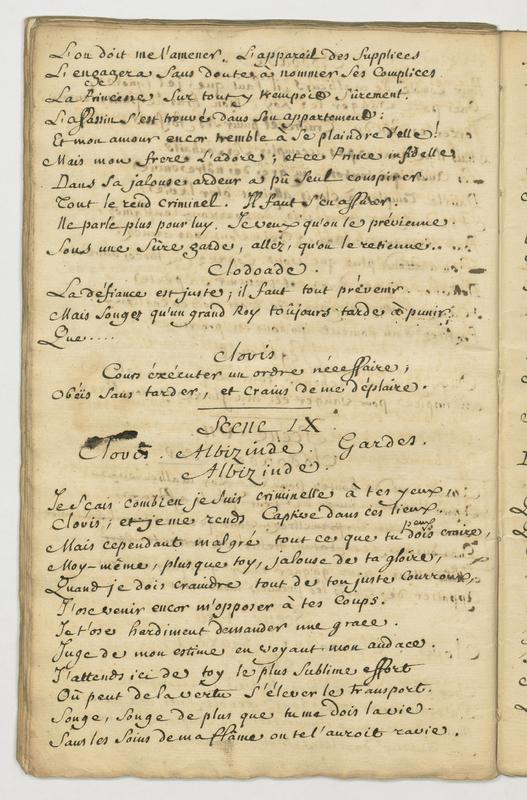 L'on doit me l'amener. L'appareil des Supplices
L'engagera Sans doute a nommer Ses Complices.
La Princesse Sur tout y trempoit Sûrement.
L'assassin S'est trouvé dans Son appartement:
Et mon amour encor tremble à Se plaindre d'elle!
Mais mon frere L'adore; et ce Prince infidelle
Dans Sa jalouse ardeur a pû Seul conspirer.
Tout le rend criminel. Il faut S'en assurer.
Ne parle plus pour luy. Je veux qu'on le prévienne.
Sous une Sûre garde, allez, qu'on le retienne...
Clodoade.
La défiance est juste; il faut tout prévenir.
Mais Songez qu'un grand Roy toûjours tarde à punir.
Que....
Clovis.
Cours éxécuter un ordre nécessaire;
Obéïs Sans tarder, et crains de me déplaire.
Scene IX
Clovis. Albizinde. Gardes.
Albizinde.
Je Sçais combien je Suis criminelle à tes yeux,
Clovis; et je me rends Captive dans ces lieux.
Mais cependant malgré tout ce que tu peux croire,
Moy-même, plus que toy, jalouse de ta gloire,
Quand je dois craindre tout de ton juste Courroux,
J'ose venir encor m'opposer à tes Coups.
Je t'ose hardiment demander une grace.
Juge de mon estime en voyant mon audace.
J'attends ici de toy le plus Sublime effort
Où peut de la vertu S'élever le transport.
Songe, Songe de plus que tu me dois la vie.
Sans les Soins de ma flâme on te l'auroit ravie.